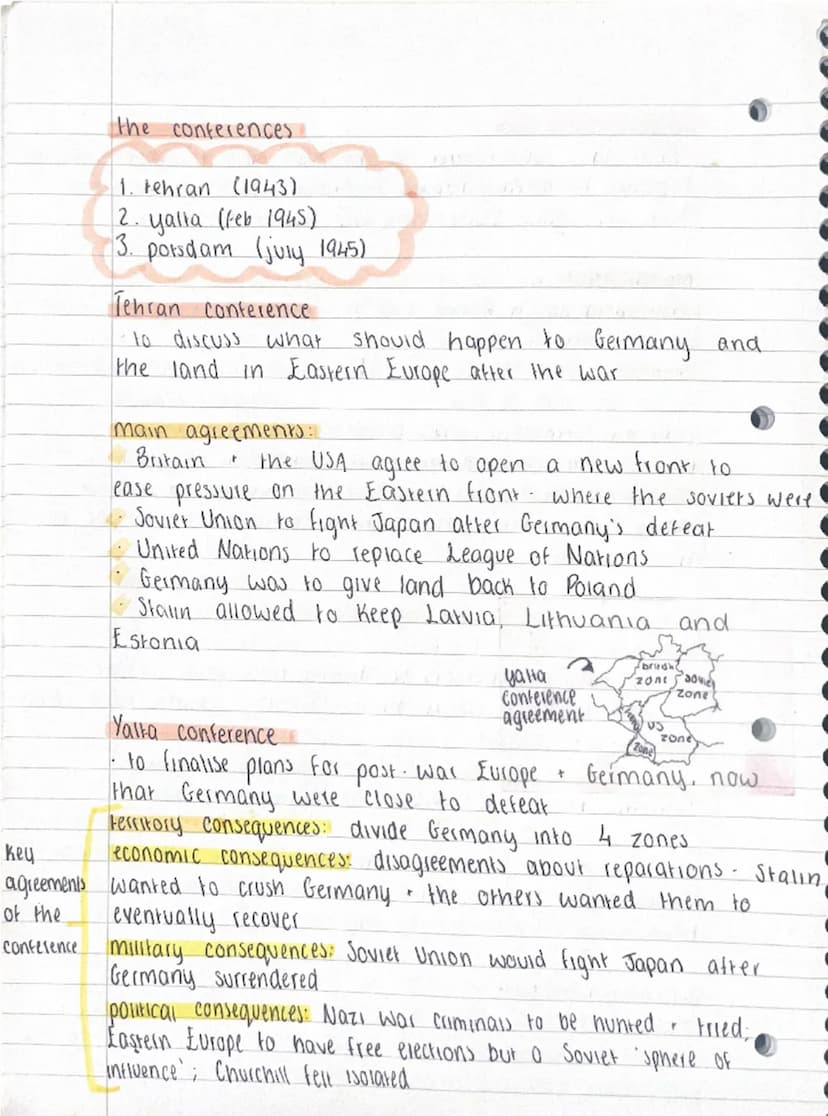 the conferences
1. tehran (1943)
2. yalta (feb 1945)
3. potsdam (july 1945)
Tehran conference
· to discuss what should happen to Germany and
the land in Eastern Europe after the war
main agreements:
· Britain + the USA agree to open a new front to
ease pressure on the Eastern front - where the soviets were
· Soviet Union to fight Japan after Germany's defeat
· United Nations to replace League of Nations
· Germany was to give land back to Poland
· Stalin allowed to keep Latvia, Lithuania and
Estonia
yalta
conference
agreement
british
zone
soviet
zone
US
zone
zone
Yalta conference
· to finalise plans for post-war Europe + Germany, now
that Germany were close to defeat
key
agreements
of the
conference
territory consequences: divide Germany into 4 zones
economic consequences: disagreements about reparations - Stalin
wanted to crush Germany + the others wanted them to
eventually recover
military consequences: Soviet Union would fight Japan after
Germany surrendered
political consequences: Nazi war criminals to be hunted + tried;
Eastern Europe to have free elections but a Soviet 'sphere of
influence'; Churchill felt isolated